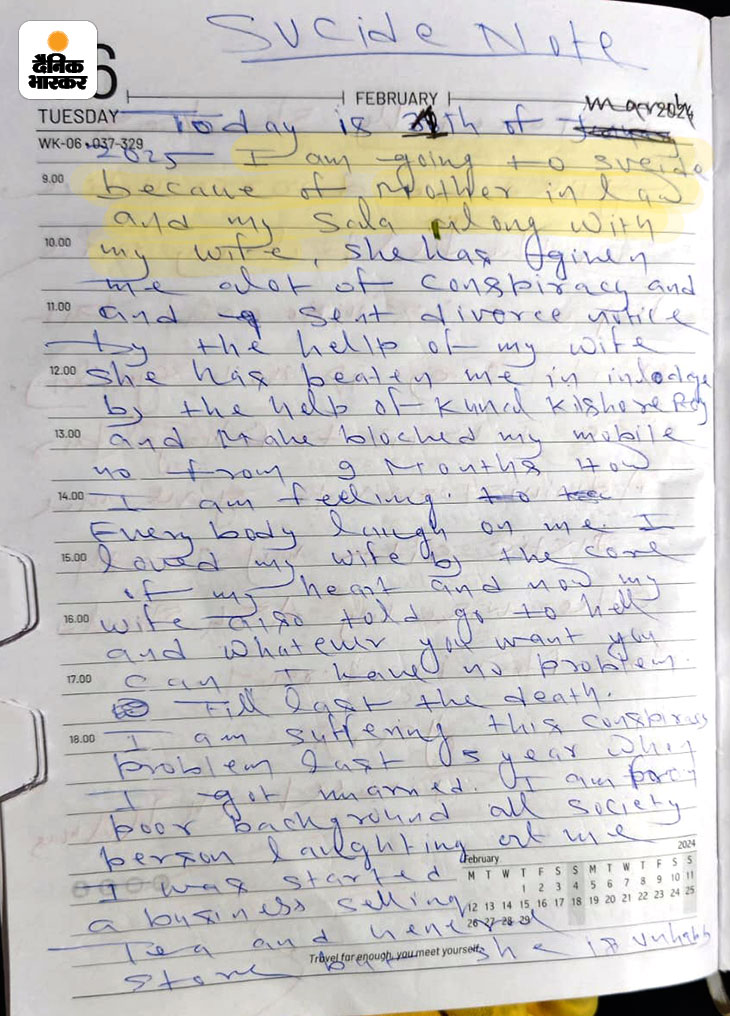 दैनिक
भास्कर
Sucide Note
6
FEBRUARY
Mar 2024
TUESDAY
Today is th of
WK-06 • 037-329
2025 I am going to sucide
9.00
becaue of Mother in law
and my Sala along with
10.00
my wife, she has given
me alot of conspiracy and
11.00
and sent divorce notice
by the hellp of my wife
12.00
she has beaten me in
by the help of Kundl Kishore
13.00
and Make blocked my mobile
no from 9 Months How
14.00
I am feeling.
Every body laugh on me. I
15.00
loved my wife by the core
of my heart and now my
16.00
wife also told go to hell
and whatever you want you
17.00
can I have no problem.
Till last the death.
18.00
I am suffering this conspiracy
problem last 5 year when
I got marred. I am
poor background all society
person laughting at me
February
2024
M T W T F S S M T W T F S S
1 2 3 4 5 6 7 8 9 10 11
12 13 14 15 16 17 18 19 20 21 22 23 24 25
26 27 28 29
I was started
a business selling
Tea and
Travel far enough, you meet yourself.
store but she is unhabb